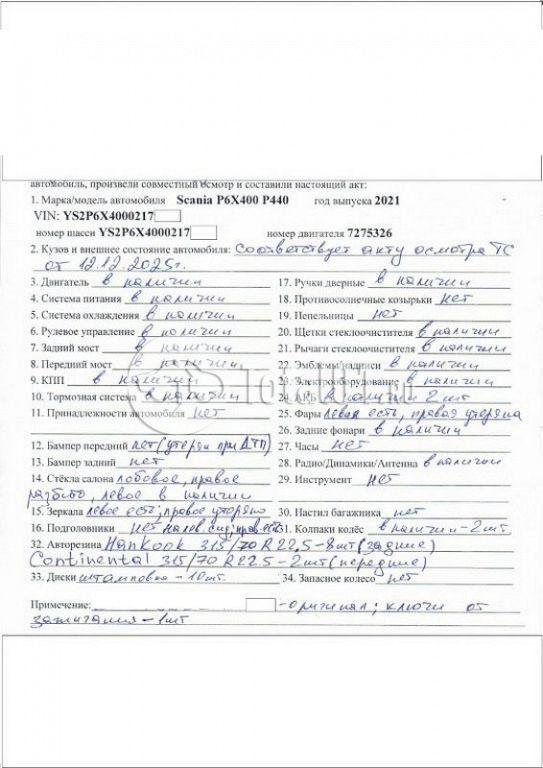 автомобиль, произвели совместный осмотр и составили настоящий акт:
1. Марка/модель автомобиля Scania P6X400 P440 год выпуска 2021
VIN: YS2P6X4000217
номер шасси YS2P6X4000217 номер двигателя 7275326
2. Кузов и внешнее состояние автомобиля: Соответствует акту осмотра ТС
от 12.12.2025г.
3. Двигатель в наличии
4. Система питания в наличии
5. Система охлаждения в наличии
6. Рулевое управление в наличии
7. Задний мост в наличии
8. Передний мост в наличии
9. КПП в наличии
10. Тормозная система в наличии
11. Принадлежности автомобиля нет
12. Бампер передний нет (утерян при ДТП)
13. Бампер задний нет
14. Стёкла салона лобовое, правое
разбито, левое в наличии
15. Зеркала левое есть, правое утеряно
16. Подголовники нет на лев. сид; прав. есть
17. Ручки дверные в наличии
18. Противосолнечные козырьки нет
19. Пепельницы нет
20. Щетки стеклоочистителя в наличии
21. Рычаги стеклоочистителя в наличии
22. Эмблемы/надписи в наличии
23. Электрооборудование в наличии
24. АКБ в наличии 2 шт
25. Фары левая есть, правая утеряна
26. Задние фонари в наличии
27. Часы нет
28. Радио/Динамики/Антенна в наличии
29. Инструмент нет
30. Настил багажника нет
31. Колпаки колёс в наличии - 2шт
32. Авторезина Hankook 315/70 R22.5 - 8шт (задние)
Continental 315/70 R22.5 - 2шт (передние)
33. Диски штамповка - 10шт.
34. Запасное колесо нет
Примечание: - оригинал; ключи от
зажигания - 1шт